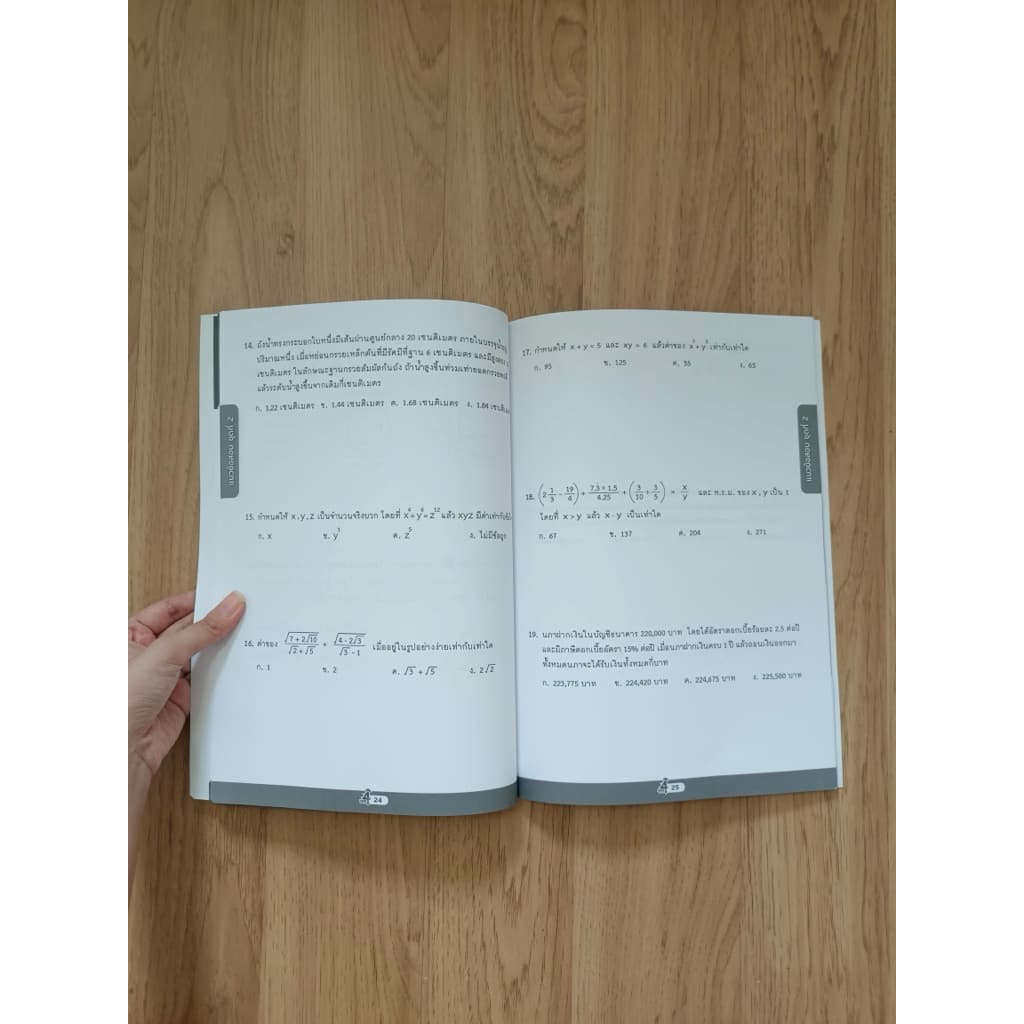 14. ถังน้ำทรงกระบอกใบหนึ่งมีเส้นผ่านศูนย์กลาง 20 เซนติเมตร ภายในบรรจุน้ำอยู่
ปริมาณหนึ่ง เมื่อหย่อนกรวยเหล็กตันที่มีรัศมีที่ฐาน 6 เซนติเมตร และมีสูงตรง
เซนติเมตร ในลักษณะฐานกรวยสัมผัสก้นถัง ถ้าน้ำสูงขึ้นท่วมเท่ายอดกรวยพอดี
แล้วระดับน้ำสูงขึ้นจากเดิมกี่เซนติเมตร
ก. 1.22 เซนติเมตร ข. 1.44 เซนติเมตร ค. 1.68 เซนติเมตร ง. 1.84 เซนติเมตร
แนวข้อสอบ ชุดที่ 2
15. กำหนดให้ x, y, z เป็นจำนวนจริงบวก โดยที่ x⁴ = y⁶ = z¹² แล้ว xyz มีค่าเท่ากับ
ก. x ข. y³ ค. z⁵ ง. ไม่มีข้อถูก
16. ค่าของ √(7 + 2√10) / (√2 + √5) + √(4 - 2√3) / (√3 - 1) เมื่ออยู่ในรูปอย่างง่ายเท่ากับเท่าใด
ก. 1 ข. 2 ค. √3 + √5 ง. 2√2
24
17. กำหนดให้ x + y = 5 และ xy = 6 แล้วค่าของ x³ + y³ เท่ากับเท่าใด
ก. 95 ข. 125 ค. 35 ง. 65
แนวข้อสอบ ชุดที่ 2
18. (2 1/3 - 19/4) + (7.3 × 1.5)/4.25 + (3/10 ÷ 3/5) = x/y และ ห.ร.ม. ของ x , y เป็น 1
โดยที่ x > y แล้ว x - y เป็นเท่าใด
ก. 67 ข. 137 ค. 204 ง. 271
19. นภาฝากเงินในบัญชีธนาคาร 220,000 บาท โดยได้อัตราดอกเบี้ยร้อยละ 2.5 ต่อปี
และมีภาษีดอกเบี้ยอัตรา 15% ต่อปี เมื่อนภาฝากเงินครบ 1 ปี แล้วถอนเงินออกมา
ทั้งหมดนภาจะได้รับเงินทั้งหมดกี่บาท
ก. 223,775 บาท ข. 224,420 บาท ค. 224,675 บาท ง. 225,500 บาท
25